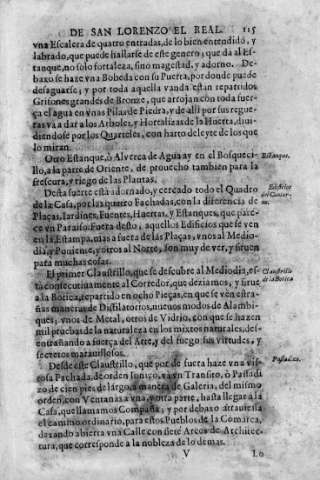 DE SAN LORENZO EL REAL. 115
vna Escalera de quatro entradas, de lo bien entendido, y
labrado, que puede hallarse de este genero, que dà al Es-
tanque, no solo fortaleza, sino magestad, y adorno. De-
baxo se haze vna Bobeda con su Puerta, por donde puede
desaguarse, y por toda aquella vanda estàn repartidos
Grifones grandes de Bronze, que arrojan con toda fuer-
ça el agua en vnas Pilas de Piedra, y de alli por sus regue-
ras và a dar a los Arboles, y Hortaliza de la Huerta, diui-
diendose por los Quarteles, con harto deleyte de los que
lo miran.
Otro Estanque, ò Alverca de Agua ay en el Bosqueci-
llo, a la parte de Oriente, de prouecho tambien para la
frescura, y riego de las Plantas.
Estanque.
Desta suerte està adornado, y cercado todo el Quadro
de la Casa, por las quatro Fachadas, con la diferencia de
Plaças, Iardines, Fuentes, Huertas, y Estanques, que pare-
ce vn Paraiso. Fuera desto, aquellos Edificios que se ven
en la Estampa, mas afuera de las Plaças, vnos al Medio-
dia, y Poniente, y otros al Norte, son muy de ver, y siruen
para muchas cosas.
Edificios
El primer Claustrillo, que se descubre al Mediodia, es-
tà consecutiuamente al Corredor, que deziamos, y sirue
a la Botica, repartido en ocho Pieças, en que se vèn estra-
ñas maneras de Distilatorios, nueuos modos de Alambi-
ques, vnos de Metal, otros de Vidrio, con que se hazen
mil pruebas de la naturaleza en los mixtos naturales, des-
entrañando a fuerça del Arte, y del fuego sus virtudes, y
secretos marauillosos.
Claustrillo
de la Botica
Desde este Claustrillo, que por de fuera haze vna vis-
tosa Fachada, de orden Ionico, và vn Transito, ò Passadi-
zo de cien pies de largo, a manera de Galeria, del mismo
orden, con Ventanas a vna, y otra parte, hasta llegar a la
Casa, que llamamos Compaña; y por debaxo atrauiessa
el camino ordinario, para estos Pueblos de la Comarca,
dexando abierta vna Calle con siete Arcos de Architec-
tura, que corresponde a la nobleza de lo demas.
Passadizo.
V
Lo